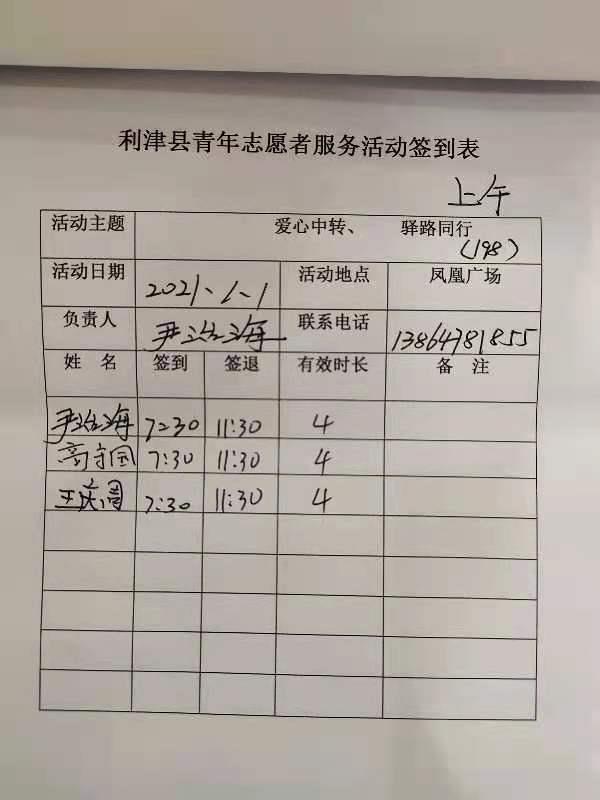 利津县青年志愿者服务活动签到表
上午
活动主题 爱心中转、 驿路同行
(198)
活动日期 2021、1、1 活动地点 凤凰广场
负责人 尹治海 联系电话 13864781855
姓 名 签到 签退 有效时长 备 注
尹治海 7:30 11:30 4
高守国 7:30 11:30 4
王庆周 7:30 11:30 4